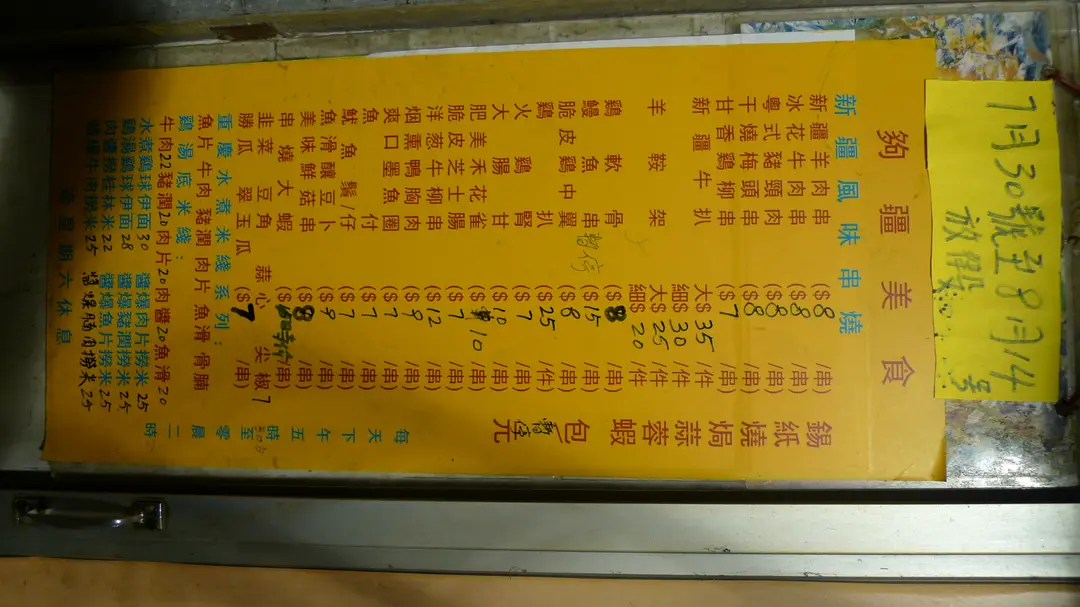 7月30號至8月14號
放假
夠疆美食
新疆風味串燒
新疆羊肉串 ($8/串)
冰花牛肉串 ($8/串)
粵式豬頸肉 ($8/串)
干燒梅頭串 ($8/串)
甘香鷄柳串 ($7/串)
新疆牛扒 大$35/件
細$30/件
羊鞍架 大$25/件
細$20/件
鷄軟骨 ($8/串)
鰻魚串 ($15/串)
脆皮鷄中翼 暫停 ($8/串)
鷄扒 ($25/件)
火鷄腎 ($7/串)
大腸甘 ($10/串)
肥美禾花雀 $10
脆皮芝士腸 ($7/串)
洋葱牛柳串 ($12/串)
烟熏鴨胸肉 ($9/串)
爽口墨魚圈 ($7/串)
魚付 ($7/串)
魷魚鬚仔 ($7/串)
魚滑釀豆卜 ($9/串)
美味鮮菇串 ($8/串)
串燒大蝦 /串)
韭菜豆角 蒜心 尖椒7
勝瓜翠玉瓜 ($7/串)
錫紙燒焗蒜蓉蝦 包 暫停 元
每天下午五時至零晨二時
重慶水煮米綫系列:
魚片 牛肉 豬潤 肉片 魚滑 骨腩
鷄湯底米綫:
牛肉22豬潤20肉片20肉醬20魚滑20
水煮鷄球伊面30 醬爆肉片撈米25
鷄湯鷄球伊面28 醬爆豬潤撈米25
肉醬撈桂林米22 醬爆魚片撈米25
醬爆牛肉撈米25 醬爆腩肉撈米25
逢星期六休息